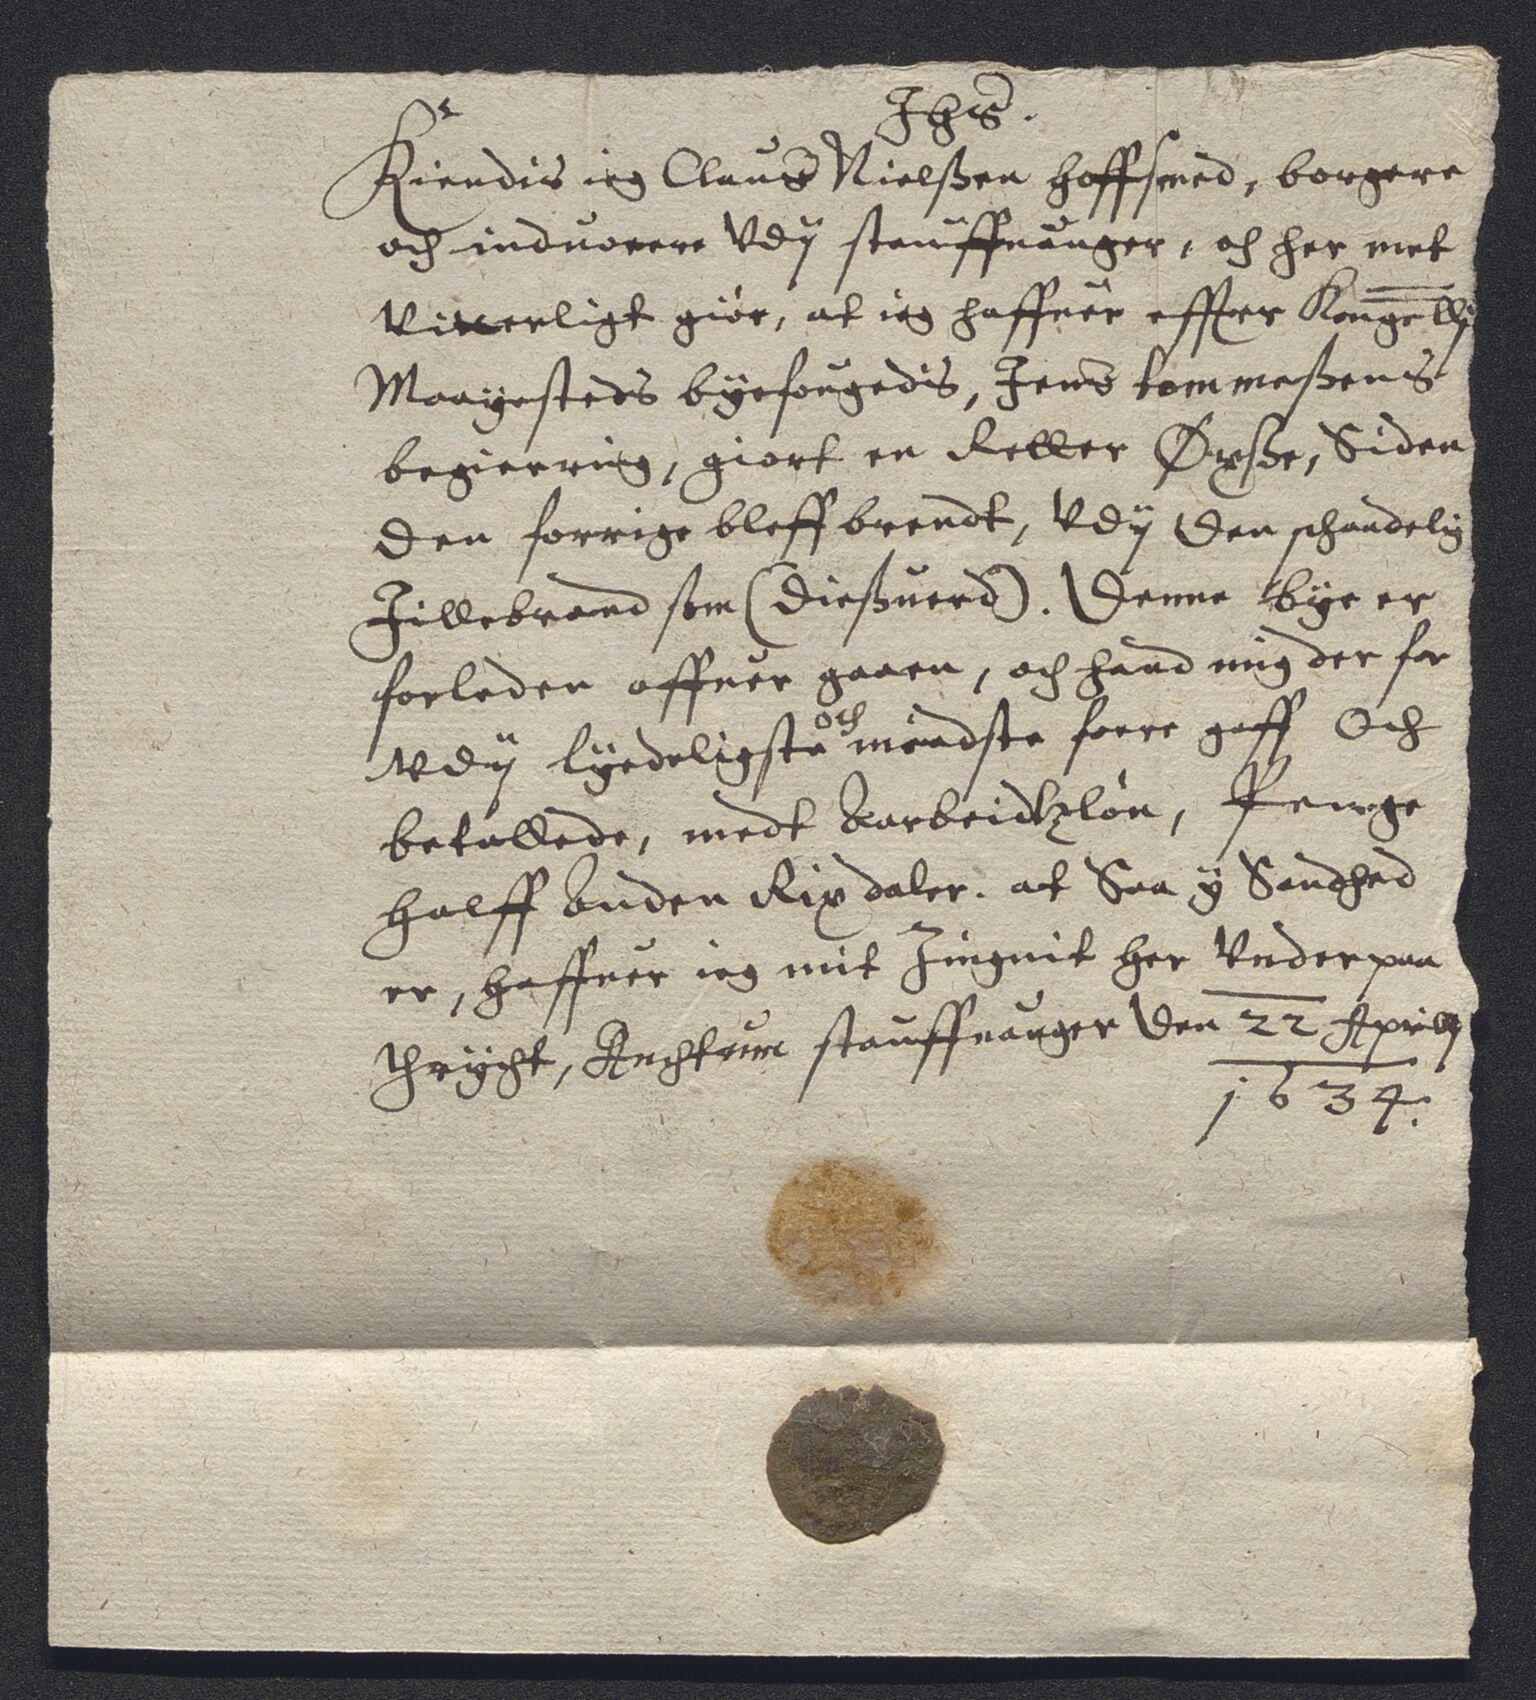 Jhs.
Kiendis ieg Claus Nielßen hoffsmed, borgere
och induonere Vdÿ stauffuanger, och her met
Vitterligt giör, at ieg haffuer effter Kongelig
Maayesteds byefougedis, Jens tommeßens
begierring, giort en Retter Øxße, Siden
den forrige bleff brendt, Vdÿ den schandelig
Jillebrand som (dießuerd). Denne bÿe er
forleden offuer gaaen, och hand mig der for
Vdÿ lÿedeligste och mindste foere gaff Och
betallede, medt Aarbeidtzlön, Penge
halff Anden Rixdaler. at Saa ÿ Sandhed
er, haffuer ieg mit Zingnit her Vnderpaa
thrÿcht, Aechtum stauffuanger den 22 Aprilly
1634.